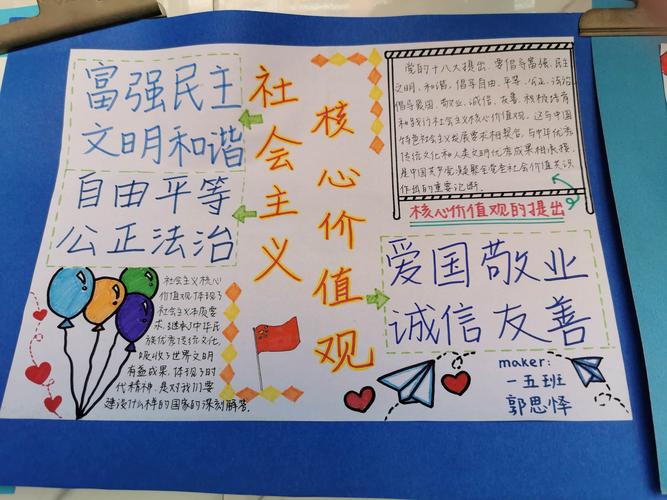 富强民主
文明和谐
自由平等
公正法治
社会主义
核心价值观
党的十八大提出，要倡导富强、民主
文明、和谐，倡导自由、平等、公正、法治
倡导爱国、敬业、诚信、友善，积极培育
和践行社会主义核心价值观，这与中国
特色社会主义发展要求相契合，与中华优秀
传统文化和人类文明优秀成果相承接，
是中国共产党凝聚全党全社会价值共识
作出的重要论断.
核心价值观的提出
爱国敬业
诚信友善
社会主义核心
价值观体现了
社会主义本质要
求，继承了中华民
族优秀传统文化，
吸收了世界文明
有益成果，体现了时
代精神，是对我们要
建设什么样的国家的深刻解答.
maker:
一五班
郭思怿